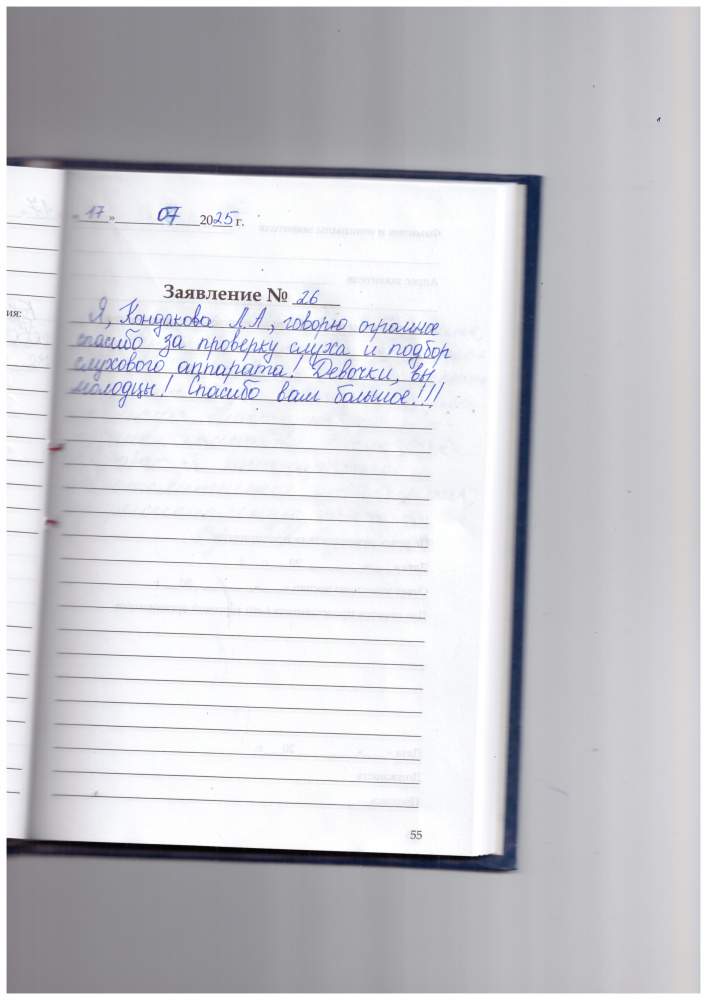 « 17 » 07 2025 г.
Заявление № 26
Я, Кондакова Л.А, говорю огромное
спасибо за проверку слуха и подбор
слухового аппарата! Девочки, вы
молодцы! Спасибо вам большое!!!
ия:
55